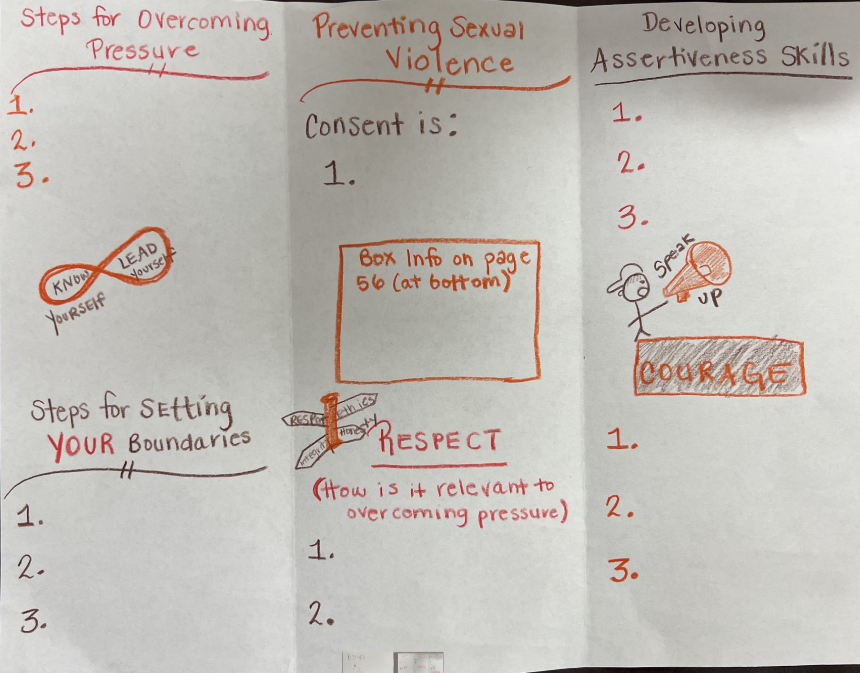 Steps for Overcoming
Pressure
1.
2.
3.
KNOW
YOURSELF
LEAD
Yourself
Steps for Setting
YOUR Boundaries
1.
2.
3.
Preventing Sexual
Violence
Consent is:
1.
Box Info on page
56 (at bottom)
Ethics
Honesty
Integrity
RESPECT
(How is it relevant to
overcoming pressure)
1.
2.
Developing
Assertiveness Skills
1.
2.
3.
Speak
UP
COURAGE
1.
2.
3.